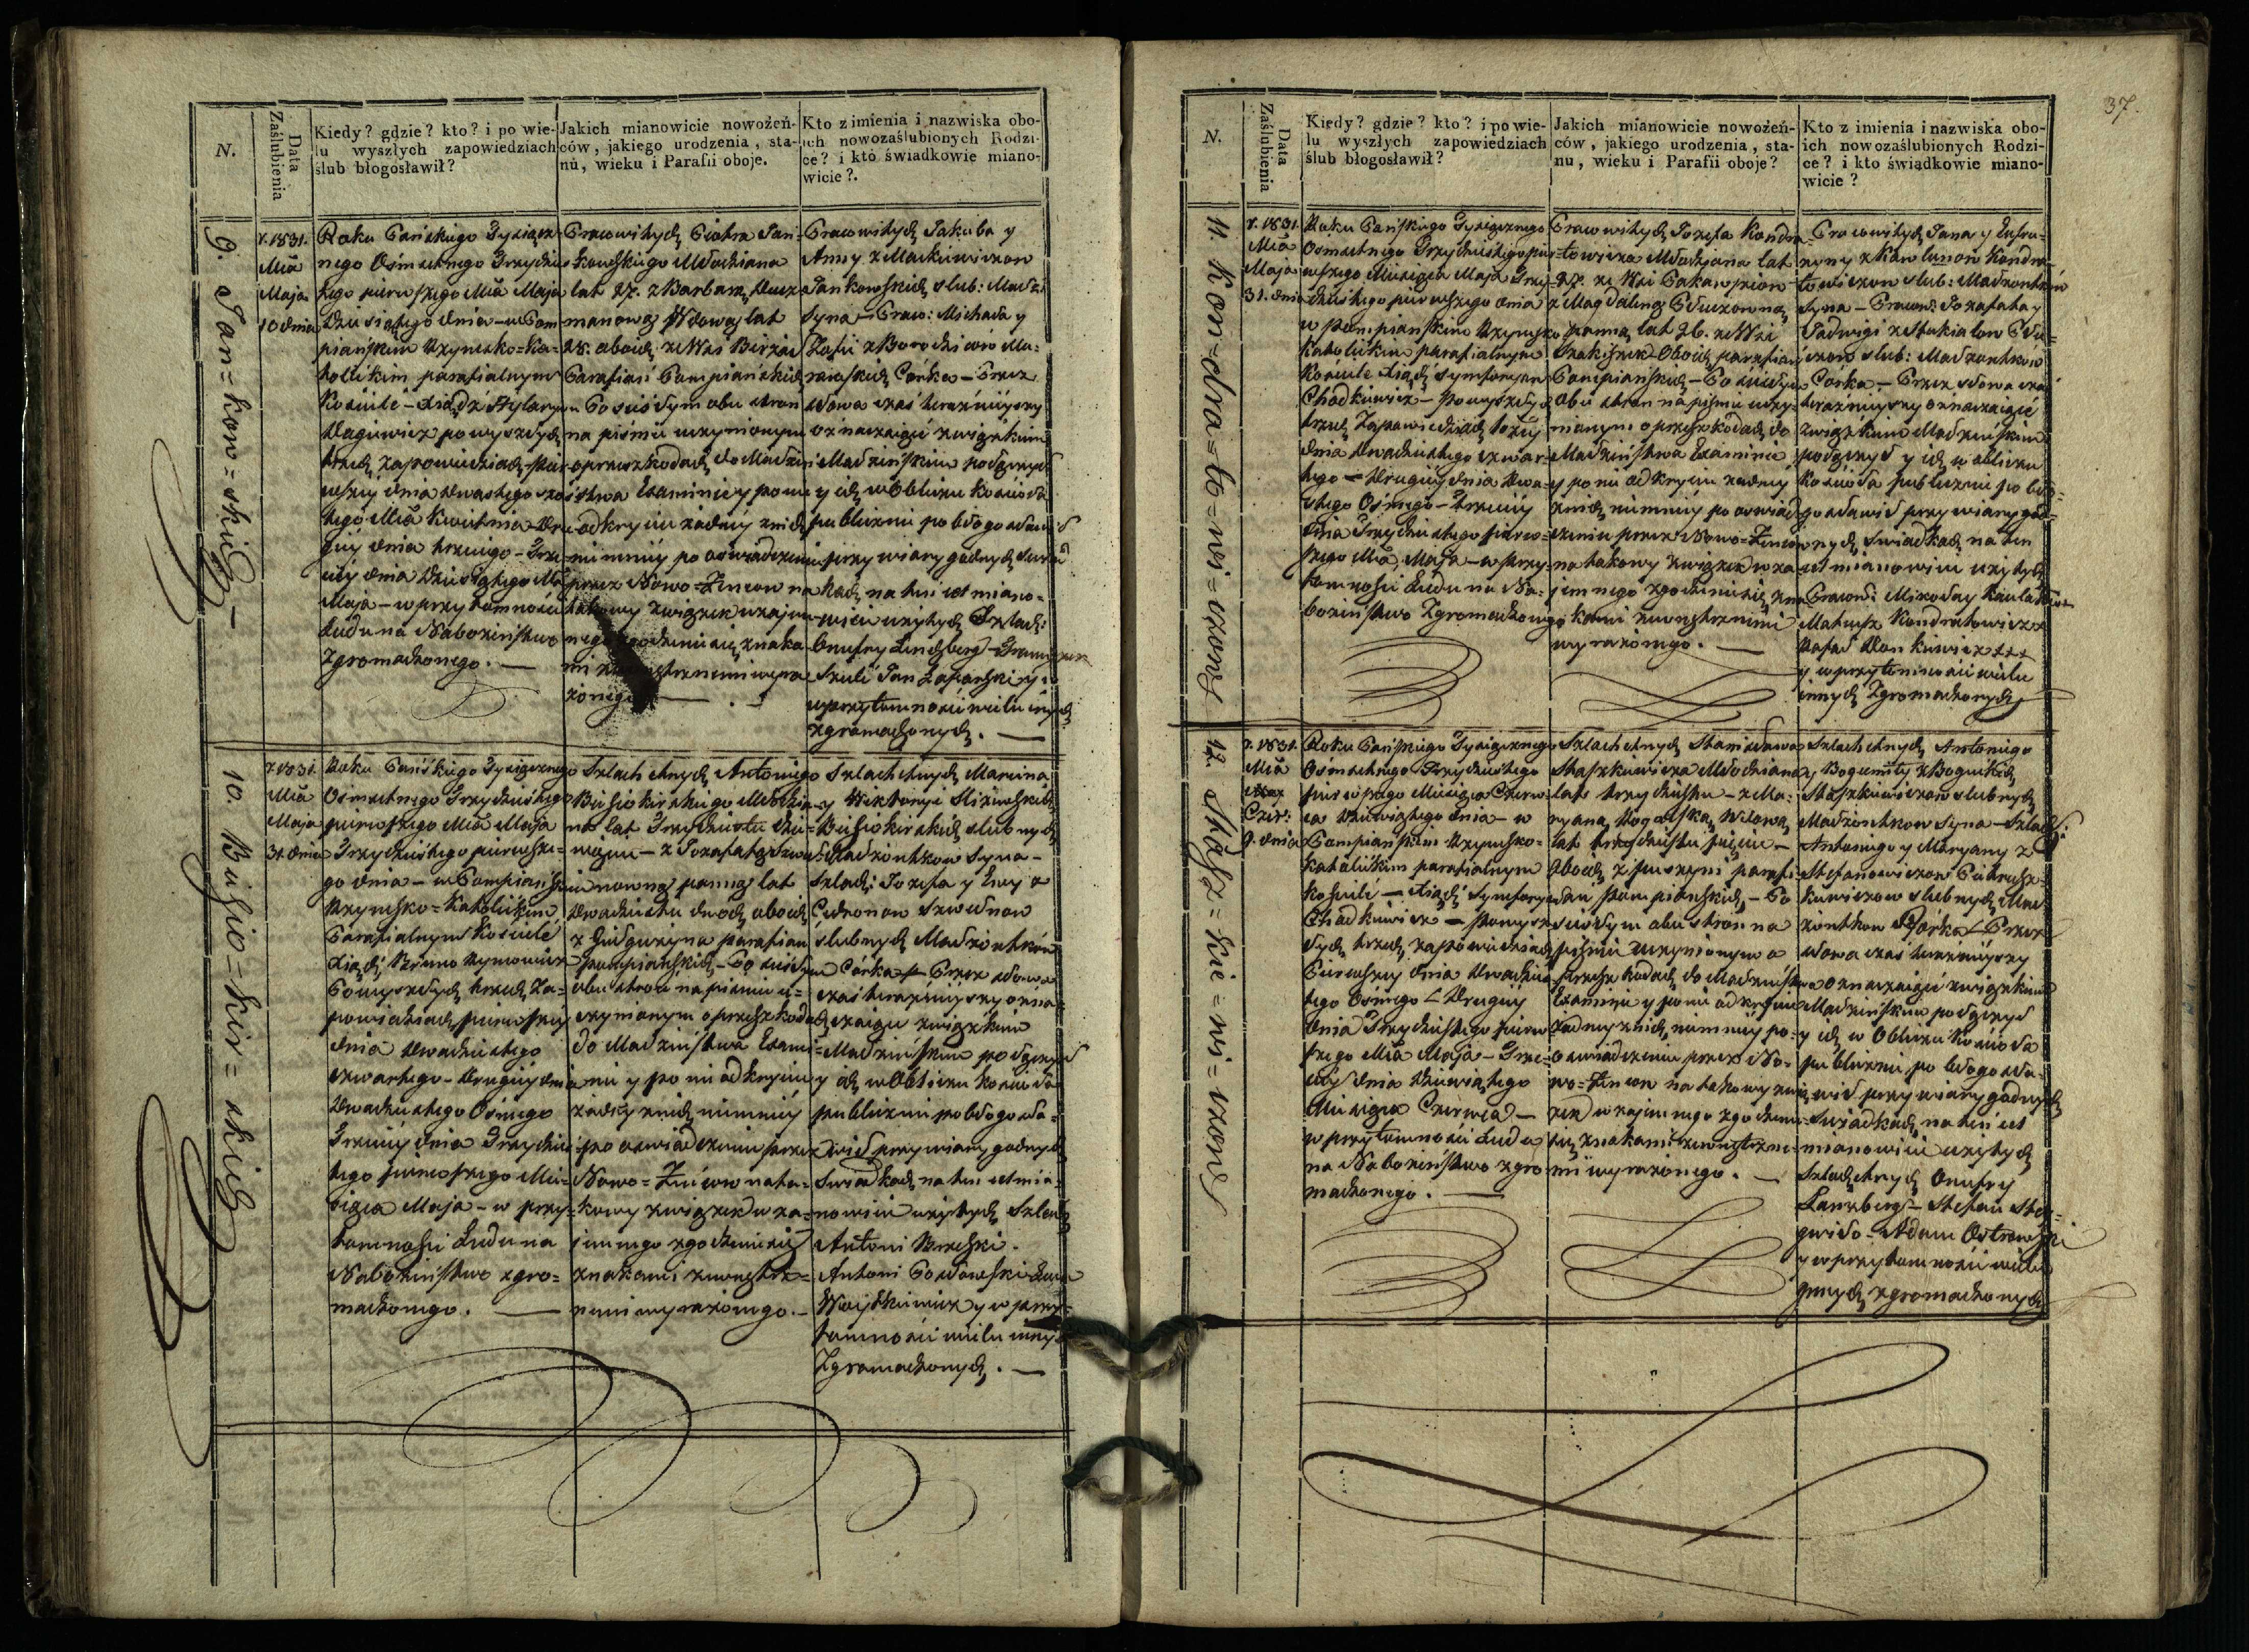 N.
Data Zaślubienia
Kiedy? gdzie? kto? i po wie-
lu wyszłych zapowiedziach
ślub błogosławił?
Jakich mianowicie nowożeń-
ców, jakiego urodzenia, sta-
nu, wieku i Parafii oboje.
Kto z imienia i nazwiska obo-
ich nowozaślubionych Rodzi-
ce? i kto świadkowie miano-
wicie?.
9. Jan=kow=skich
r. 1831.
Mca
Maja
10 dnia
Roku Pańskiego Tysiącz-
nego Ośmsetnego Trzydzies-
tego pierwszego Mca Maja
dziesiątego dnia - w Pom-
piańskim Rzymsko=Ka-
tolickim parafialnym
Kościele - Xiądz Hylary
powyszłych
trzech zapowiedziach - pier-
wszey dnia dwastego szos-
tego Mca Kwietnia - Dru-
giey dnia trzeciego - Trze-
ciey dnia dziesiątego Mca
Maja - w przytomności
Ludu na Nabożeństwo
zgromadzonego. -
Pracowitych Piotra Jan-
kowskiego Młodziana
lat 27. z Barbarą
Wdową lat
28. oboich ze Wsi
Parafian Pompiańskich
Po ścisłym obu stron
na piśmie uczynionym
o przeszkodach do Małżeń-
stwa Examinie y po nie
odkryciu żadney z nich
niemniey po oświadczeniu
przez Nowo=Żencow na
takowy związek wzajem-
nego zgodzenia się znaka-
mi zewnętrznemi wyra-
żonego -
Pracowitych Jakuba y
Anny z Mackiewiczow
Jankowskich slub: Małż:
Syna - Praco: Michała y
Zofii z
Córka - Przez
słowa czas teraźnieyszy
oznaczaiące związkiem
Małżeńskim połączył
y ich w Obliczu Kościoła
publicznie pobłogosławił
przy wiary godnych Swiad-
kach na ten cel miano-
wicie użytych Szlach:
Onufry Lindzberg -
Jan y
w przytomności wielu innych
zgromadzonych. -
10. Busio=kir=skich
r. 1831.
Mca
Maja
31. dnia
Roku Pańskiego Tysiącznego
Ośmsetnego Trzydziestego
pierwszego Mca Maja
Trzydziestego pierwsze-
go dnia - w Pompiańskim
Rzymsko=Katolickim
Parafialnym Kościele
Xiądz Bruno Rymowicz
Powyszłych trzech Za-
powiedziach pierwszey
dnia dwadziestego
czwartego - Drugiey dnia
Dwadziestego Osmego
Trzeciey dnia Trzydzies-
tego pierwszego Mie-
siąca Maja - w przy-
tomności Ludu na
Nabożeństwo zgro=
madzonego. -
Szlachetnych Antoniego
Busiokirskiego Młodzia-
na lat Trzydziestu dzie-
więciu - z Jozafatą
panną lat
dwadziestu dwóch oboich
z parafian
pompiańskich - Po ścisłym
obu stron na piśmie u=
czynionym o przeszkodach
do Małżeństwa Exami-
nie y po nieodkryciu
żadney z nich niemniey
po oświadczeniu przez
Nowo=Żencow na ta-
kowy związek wza-
jemnego zgodzenia się
znakami zewnętrz-
nemi wyrażonego. -
Szlachetnych Marcina
y Wiktoryi
Busiokirskich slubnych
Małżonkow Syna -
Szlach: Jozefa y Ewy z
slubnych Małżonkow
Córka - Przez słowa
czas teraźnieyszy ozna-
czaiące związkiem
Małżeńskim połączył
y ich w Obliczu Kościoła
publicznie pobłogosła-
wił przy wiary godnych
Swiadkach na ten cel mia-
nowicie użytych Szlach:
Antoni Brzeski -
Antoni
y w przy-
tomności wielu innych
Zgromadzonych. -
37.
N.
Data Zaślubienia
Kiedy? gdzie? kto? i po wie-
lu wyszłych zapowiedziach
ślub błogosławił?
Jakich mianowicie nowożeń-
ców, jakiego urodzenia, sta-
nu, wieku i Parafii oboje?
Kto z imienia i nazwiska obo-
ich nowozaślubionych Rodzi-
ce? i kto świadkowie miano-
wicie?
11. Kon=dra=to=wi=czow
r. 1831.
Mca
Maja
31. dnia
Roku Pańskiego Tysiącznego
Osmsetnego Trzydziestego pier-
wszego Miesiąca Maja Trzy-
dziestego pierwszego dnia
w Pompiańskim Rzymsko
Katolickim parafialnym
Kościele Xiądz Symforyan
Chodkiewicz - Powyszłych
trzech Zapowiedziach
dnia dwadziestego czwar-
tego - Drugiey dnia Dwa-
dziestego Osmego - Trzeciey
dnia Trzydziestego pierw-
szego Mca Maja - w przy-
tomności Ludu na Na-
bożeństwo Zgromadzonego
Pracowitych Jozefa Kondra-
towicza Młodziana lat
27. ze Wsi
z Magdaleną
panną lat 26. ze Wsi
Oboich parafian
Pompiańskich - Po ścisłym
Obu stron na piśmie uczy-
nionym o przeszkodach do
Małżeństwa Examinie
y po nieodkryciu żadney
z nich niemniey po oświad-
czeniu przez Nowo=Żencow
na takowy związek wza-
jemnego zgodzenia się zna-
kami zewnętrznemi
wyrażonego. -
Pracowitych Jana y Eufro-
zyny z Kondra-
towiczow slub: Małżonkow
Syna - Pracow: Jozafata y
Jadwigi z
slub: Małżonkow
Córka - Przez słowa czas
teraźnieyszy oznaczaiące
związkiem Małżeńskim
połączył y ich w obliczu
Kościoła publicznie pobło-
gosławił przy wiary god-
nych Swiadkach na ten
cel mianowicie użytych
Pracow: Mikołay
Mateusz Kondratowicz
Rafał
y w przytomności wielu
innych Zgromadzonych
12. Stasz=kie=wi=czow
r. 1831.
Mca
Czer:
9. dnia
Roku Pańskiego Tysiącznego
Ośmsetnego Trzydziestego
pierwszego Miesiąca Czerw-
ca dziewiątego dnia - w
Pompiańskim Rzymsko-
katolickim parafialnym
Kościele - Xiądz Symforyan
Chodkiewicz - Powysz-
łych trzech zapowiedziach
Pierwszey dnia dwadzies-
tego Osmego - Drugiey
dnia Trzydziestego pierw-
szego Mca Maja - Trze-
ciey dnia dziewiątego
Miesiąca Czerwca -
w przytomności Ludu
na Nabożeństwo zgro-
madzonego. -
Szlachetnych Stanisława
Staszkiewicza Młodziana
lat trzydziestu - z Ma-
ryanną Wdową
lat trzydziestu pięciu -
Oboich parafi-
an pompiańskich, - Po
ścisłym obu stron na
piśmie uczynionym o
przeszkodach do Małżeństwa
Examinie y po nieodkryciu
żadney z nich niemniey po-
oświadczeniu przez No-
wo=Żencow na takowy zwią-
zek wzajemnego zgodzenia
się znakami zewnętrzne-
mi wyrażonego. -
Szlachetnych Antoniego
y Bogumiły z
Staszkiewiczow slubnych
Małżonkow Syna - Szlach:
Antoniego y Maryany z
Stefanowiczow
slubnych Mał-
żonkow Córka - Przez
słowa czas teraźnieyszy
oznaczaiące związkiem
Małżeńskim połączył
y ich w Obliczu Kościoła
publicznie pobłogosła-
wił przy wiary godnych
Swiadkach na ten cel
mianowicie użytych
Szlachetnych Onufry
Lanzberg - Stefan
Adam Ostrowski
y w przytomności wielu
innych zgromadzonych